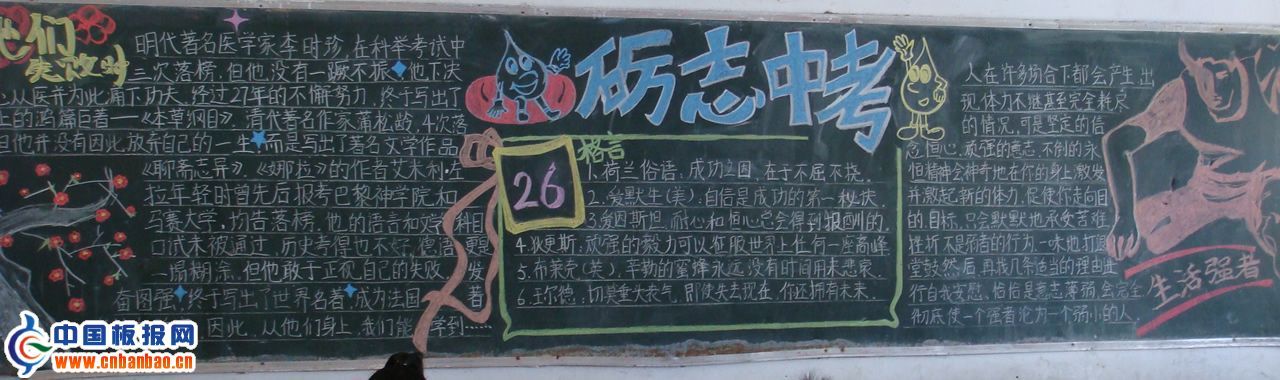 他们
失败时
明代著名医学家李时珍,在科举考试中
三次落榜,但他没有一蹶不振,他下决
心从医并为此痛下功夫,经过27年的不懈努力,终于写出了
上的鸿篇巨著——《本草纲目》,清代著名作家蒲松龄,4次落
但他并没有因此放弃自己的一生,而是写出了著名文学作品
《聊斋志异》,《娜拉》的作者艾米利·左
拉年轻时曾先后报考巴黎神学院和
马赛大学,均告落榜,他的语言和文学科目
口试未被通过,历史考得也不好,德语更是
一塌糊涂,但他敢于正视自己的失败,发
奋图强,终于写出了世界名著,成为法国著
因此,从他们身上,我们能学到……
砺志中考
26
格言
1.荷兰俗语:成功之因,在于不屈不挠.
2.爱默生(美):自信是成功的第一秘诀.
3.爱因斯坦:耐心和恒心总会得到报酬的.
4.狄更斯:顽强的毅力可以征服世界上任何一座高峰
5.布莱克(英):辛勤的蜜蜂永远没有时间用来悲哀.
6.王尔德:切莫垂头丧气,即使失去现在,你还拥有未来.
人在许多场合下都会产生出
现体力不继甚至完全耗尽
的情况,可是坚定的信
念恒心,顽强的意志,不倒的永
恒精神会神奇地在你的身上激发
并激起新的体力,促使你走向目
的目标,只会默默地承受苦难
挫折不是强者的行为,一味地打退
堂鼓然后,再找几条适当的理由进
行自我安慰,恰恰是意志薄弱,会完全
彻底使一个强者沦为一个弱小的人.
生活强者
中国板报网
www.cnbanbao.cn